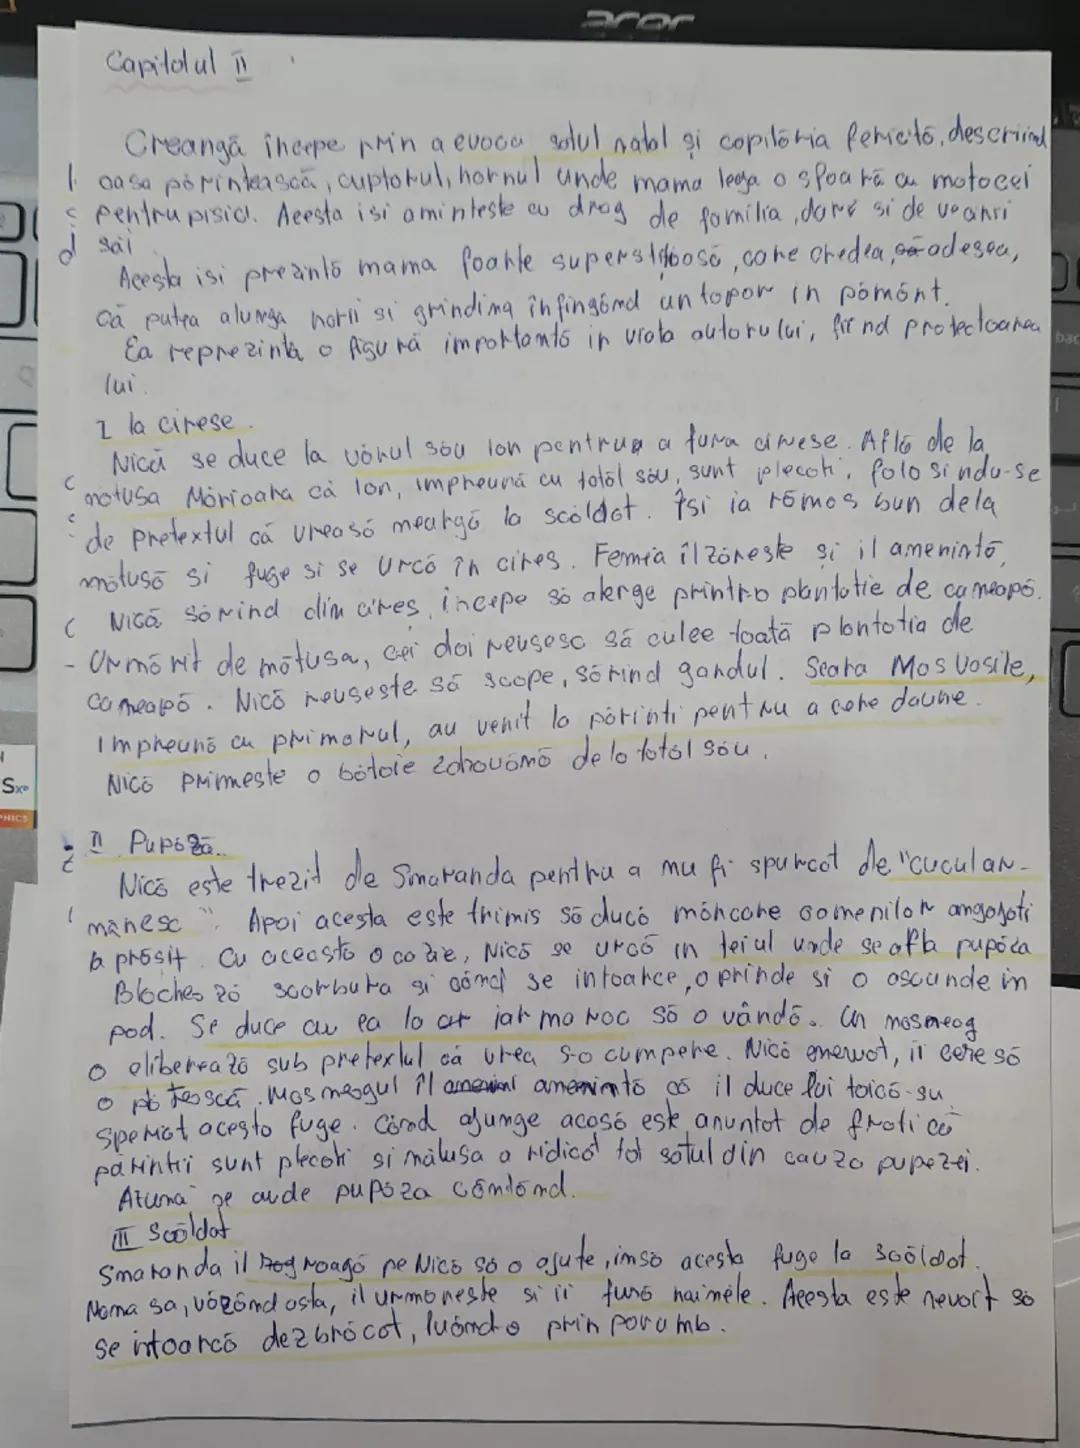 acer
Capitolul II
Creangă începe prin a evoca satul natal și copilăria fericită, descriind
casa părintească, cuptorul, hornul unde mama lega o sfoară cu motocei
pentru pisici. Acesta isi aminteste cu drag de familia, dar si de vecinii
săi.
Acesta isi prezintă mama foarte superstițioasă, care credea, adesea,
că putea alunga norii si grindina înfingând un topor in pământ.
Ea reprezintă o figură importantă in viata autorului, fiind protectoarea
lui.
I la cirese.
Nică se duce la vărul său Ion pentru a fura cirese. Află de la
mătusa Mărioara că Ion, împreună cu tatăl său, sunt plecati, folosindu-se
de pretextul că vrea să meargă la scăldat. Își ia rămas bun de la
mătusă si fuge si se urcă în cires. Femeia îl zăreste și il amenintă,
Nică sărind din cires, începe să alerge printr-o plantatie de cânepă.
Urmărit de mătusa, cei doi reusesc să culce toată plantatia de
cânepă. Nică reuseste să scape, sărind gardul. Seara Mos Vasile,
Impreună cu primarul, au venit la părinti pentru a cere daune.
Nică primeste o bătaie zdravănă de la tatăl său.
II Pupăză
Nică este trezit de Smaranda pentru a nu fi spurcat de "cucul ar-
mănesc". Apoi acesta este trimis să ducă mâncare oamenilor angajati
la prăsit. Cu această ocazie, Nică se urcă in teiul unde se afla pupăza
Blochează scorbura și când se intoarce, o prinde si o ascunde in
pod. Se duce cu ea la iarmaroc să o vândă. Un mosneag
o eliberează sub pretextul că vrea s-o cumpere. Nică enervat, ii cere să
o plătească. Mosneagul îl amenintă că il duce lui taică-su
Speriat acesta fuge. Când ajunge acasă este anuntat de frati că
părintii sunt plecati si mătusa a ridicat tot satul din cauza pupezei.
Atunci se aude pupăza cântând.
III Scăldat
Smaranda il roagă pe Nică să o ajute, insă acesta fuge la scăldat.
Mama sa, văzând asta, il urmareste si ii fură hainele. Acesta este nevoit să
se intoarcă dezbrăcat, luând-o prin porumb.